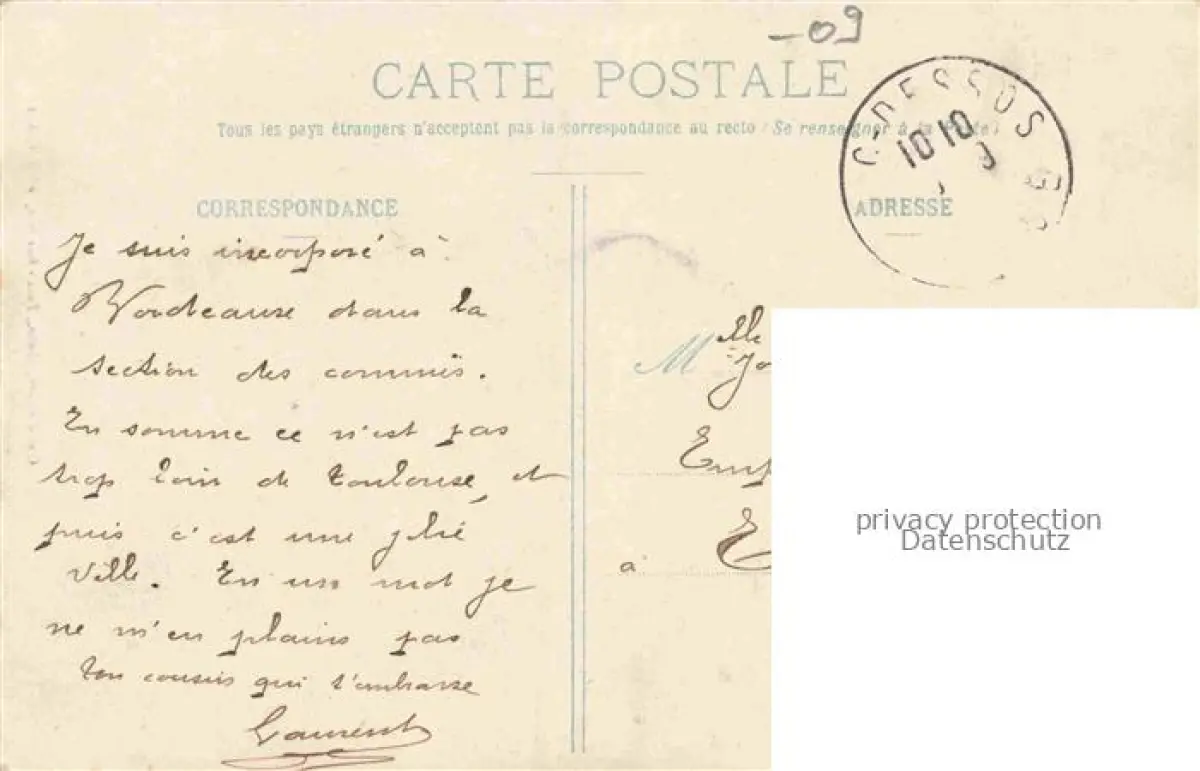 -09
CARTE POSTALE
Tous les pays étrangers n'acceptent pas la correspondance au recto (Se renseigner à la Poste)
CORRESPONDANCE
ADRESSE
C-DESSUS
10 10
Je suis incorporé à
Bordeaux dans la
section des commis.
En somme ce n'est pas
trop loin de Toulouse, et
puis c'est une jolie
ville. En un mot je
ne m'en plains pas
Ton cousin qui t'embrasse
Laurent
Melle
à
privacy protection
Datenschutz